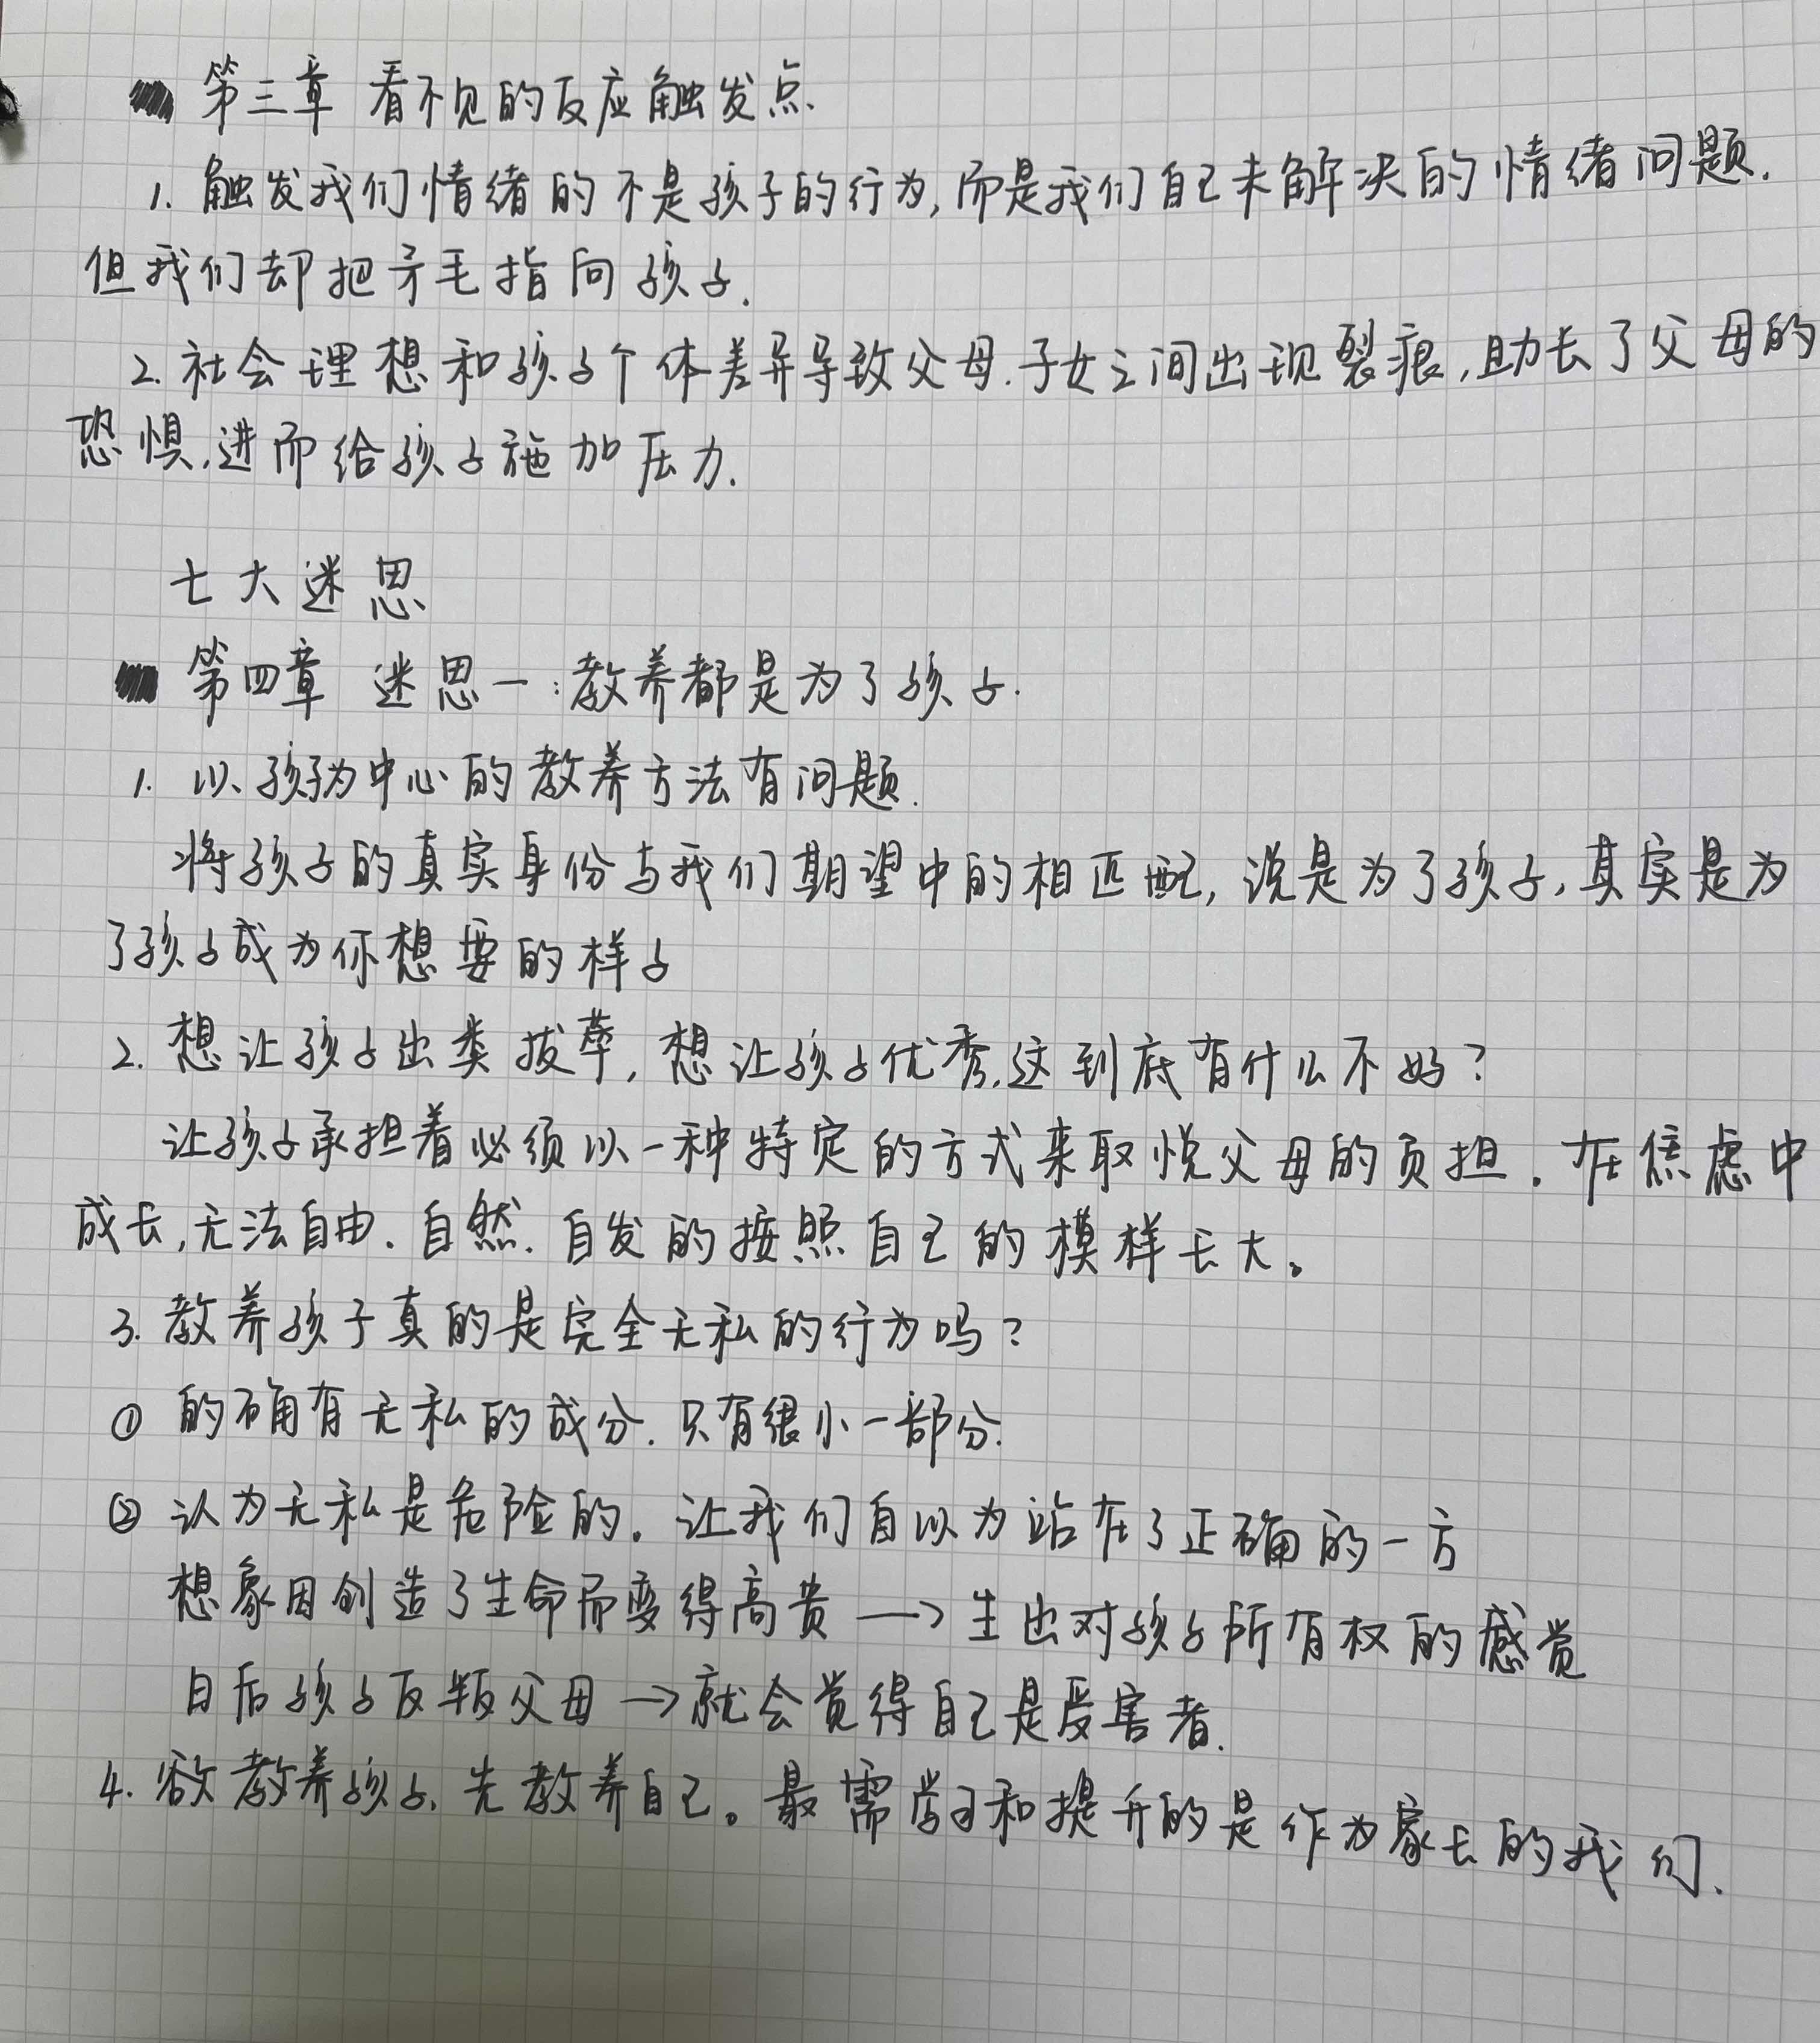 第三章 看不见的反应触发点.
1. 触发我们情绪的不是孩子的行为,而是我们自己未解决的情绪问题.
但我们却把矛毛指向孩子.
2. 社会理想和孩子个体差异导致父母.子女之间出现裂痕,助长了父母的
恐惧,进而给孩子施加压力.
七大迷思
第四章 迷思一:教养都是为了孩子.
1. 以孩子为中心的教养方法有问题.
将孩子的真实身份与我们期望中的相匹配,说是为了孩子,其实是为
了孩子成为你想要的样子
2. 想让孩子出类拔萃,想让孩子优秀,这到底有什么不好?
让孩子承担着必须以一种特定的方式来取悦父母的负担.在焦虑中
成长,无法自由.自然.自发的按照自己的模样长大。
3. 教养孩子真的是完全无私的行为吗?
① 的确有无私的成分.只有很小一部分.
② 认为无私是危险的。让我们自以为站在了正确的一方
想象因创造了生命而变得高贵 → 生出对孩子所有权的感觉
日后孩子反叛父母 → 就会觉得自己是受害者.
4. 欲教养孩子,先教养自己。最需学习和提升的是作为家长的我们.